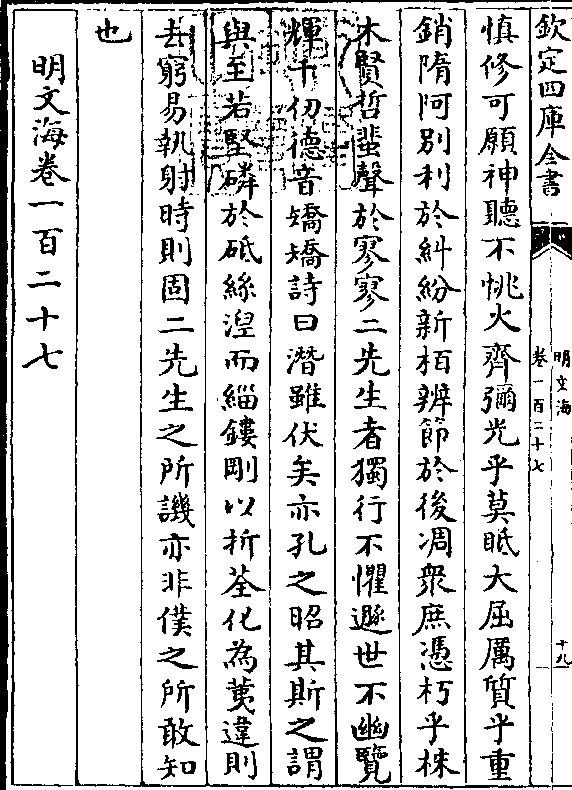 欽定四庫全書
明文海
卷一百二十七
十九
慎修可願神聽不恌火齊彌光乎莫眡大屈厲質乎重
銷隋阿别利於糾紛新栢辨節於後凋衆庶憑朽乎株
木賢哲蜚聲於寥寥二先生者獨行不懼遯世不幽覽
輝千仞德音矯矯詩曰潛雖伏矣亦孔之昭其斯之謂
與至若堅磷於砥絲湼而緇鏤剛以折荃化為荑違則
去窮易執射時則固二先生之所譏亦非僕之所敢知
也
明文海卷一百二十七